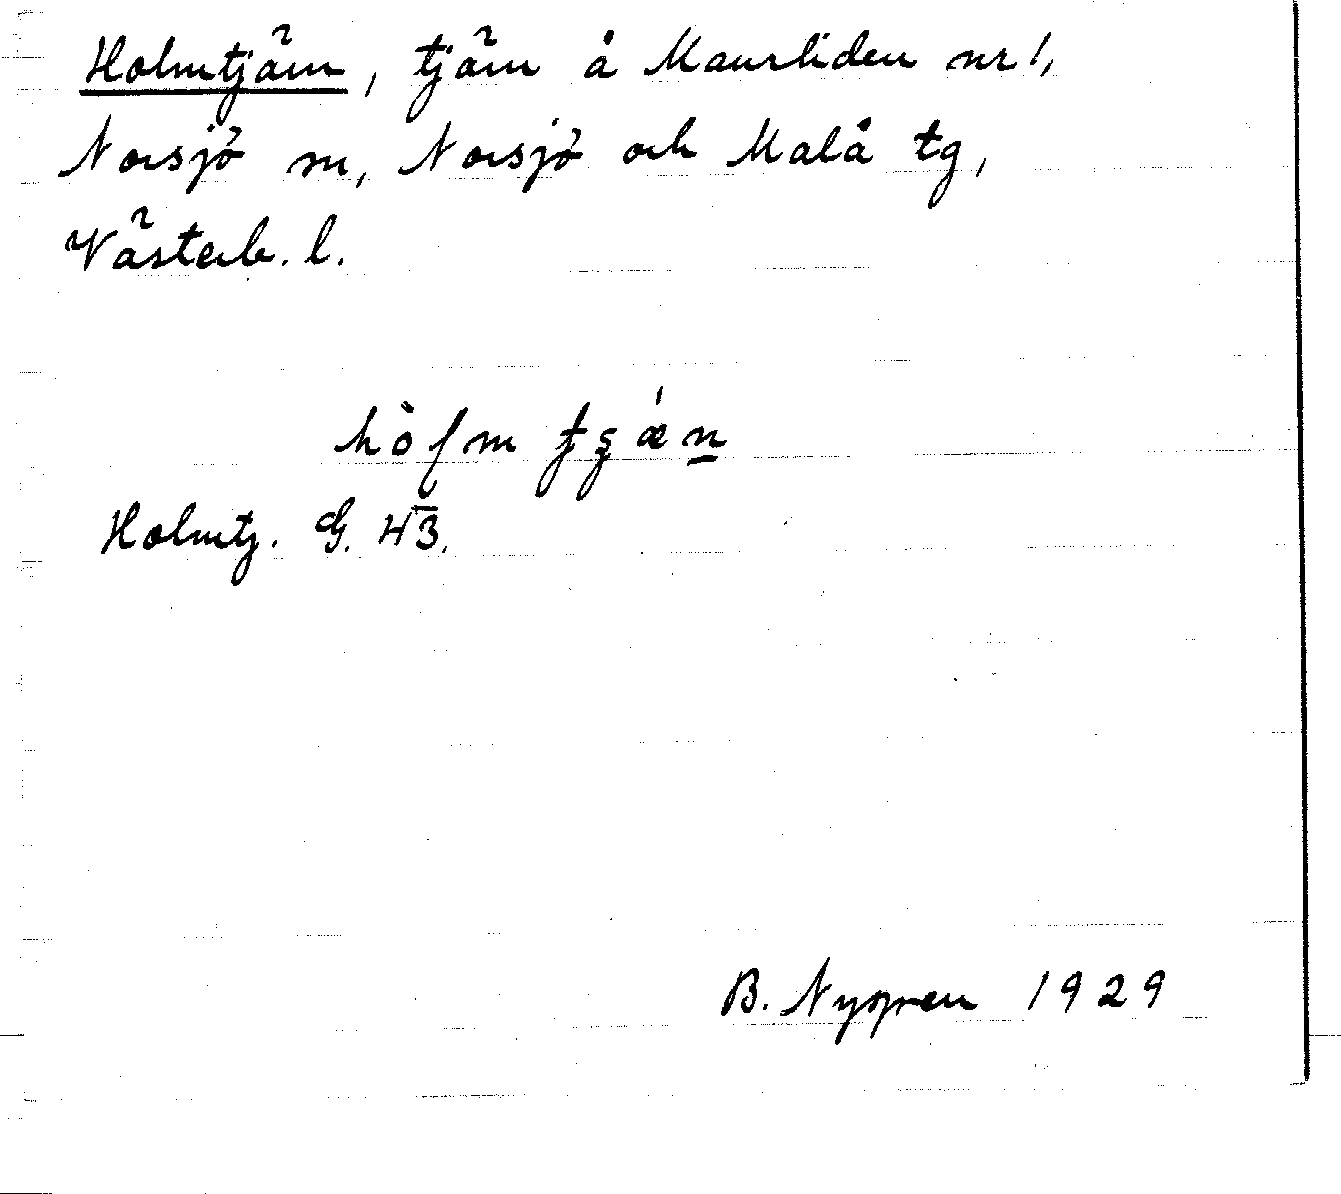 Holmtjärn, tjärn å Maurliden nr 1,
Norsjö sn, Norsjö och Malå tg,
Västerb. l.
Holmtj. G. 43.
B. Nygren 1929